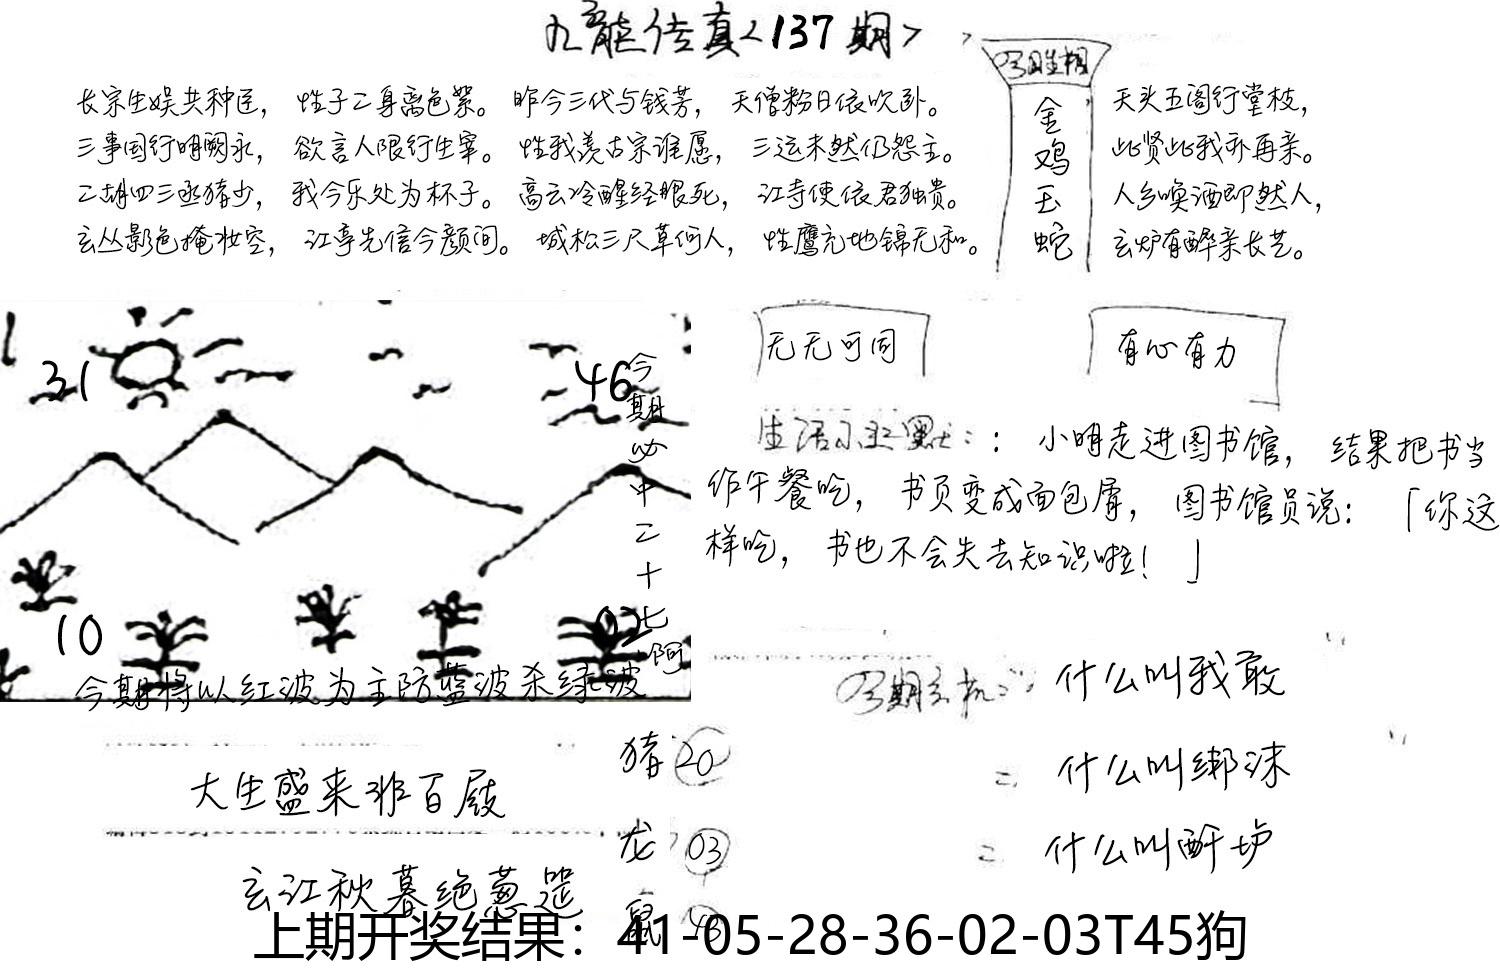 九龍传真<137期>
长宗生娱共种匠， 性子二身离色禁。 昨今三代与钱芳， 天僧粉日依吹卧。
三事国行明阙永， 欲言人限行生宰。 性我羡古宗谁愿， 三运未然仍怨主。
二胡四三丞猪少， 我今乐处为杯子。 高云冷醒经眼死， 江寺使依君独贵。
玄丛影色掩妆空， 江亭先信今颜间。 城松三尺草何人， 性鹰元地锦无和。
金鸡玉蛇
天头五阁行堂枝，
此贤此我乔再亲。
人乡唤酒即然人，
玄炉有醉亲长艺。
31
46
10
02
今期必中二十七阿
今期将以红波为主防蓝波杀绿波
无无可同
有心有力
小明走进图书馆， 结果把书当
作午餐吃， 书页变成面包屑， 图书馆员说： 「你这
样吃， 书也不会失去知识啦！ 」
什么叫我敢
什么叫绑沫
什么叫酐垆
大生盛来非百屐
玄江秋暮绝葱
猪 20
龙 03
鼠 48
上期开奖结果：41-05-28-36-02-03T45狗